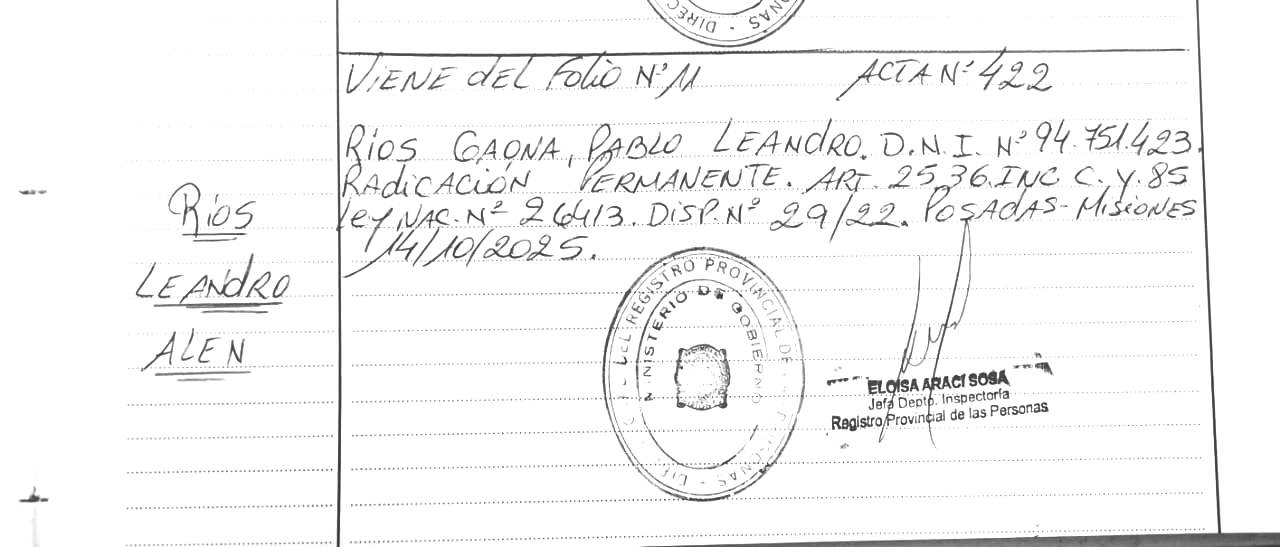 DIREC
ONAS -
VIENE dEL Folio Nº 11 ACTA Nº 422
Ríos GAONA, PABLO LEANDRO. D.N.I. Nº 94.751.423.
RAdiCACIÓN PERMANENTE. ART. 25,36.INC C. y. 85
Ley NAC. Nº 26413. DISP. Nº 29/22. POSADAS-MISIONES
14/10/2025.
Ríos
LEANdRO
ALEN
REGISTRO PROVINCIAL DE
MINISTERIO DE GOBIERNO
ELOISA ARACI SOSA
Jefa Depto. Inspectoría
Registro Provincial de las Personas